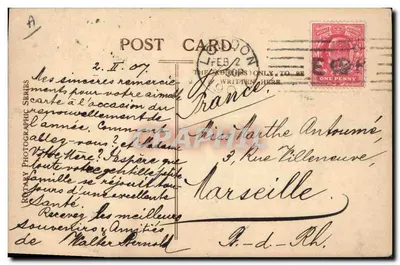 A
POST CARD.
LONDON
FEB 2
THE ADDRESS ONLY TO BE
WRITTEN HERE.
ONE PENNY
ROTARY PHOTOGRAPHIC SERIES
2. II. 07.
Mes sincères remercie-
ments pour votre aimable
carte à l'occasion du
renouvellement de
l'année. Comment
allez-vous? et
Votre Père? J'espère que
toute votre gentille petite
famille se réjouit tou-
jours d'une excellente
Santé.
Recevez les meilleurs
souvenirs & Amitiés
de Walter
France.
Marthe
3, Rue Villeneuve,
Marseille
B.-d-Rh.